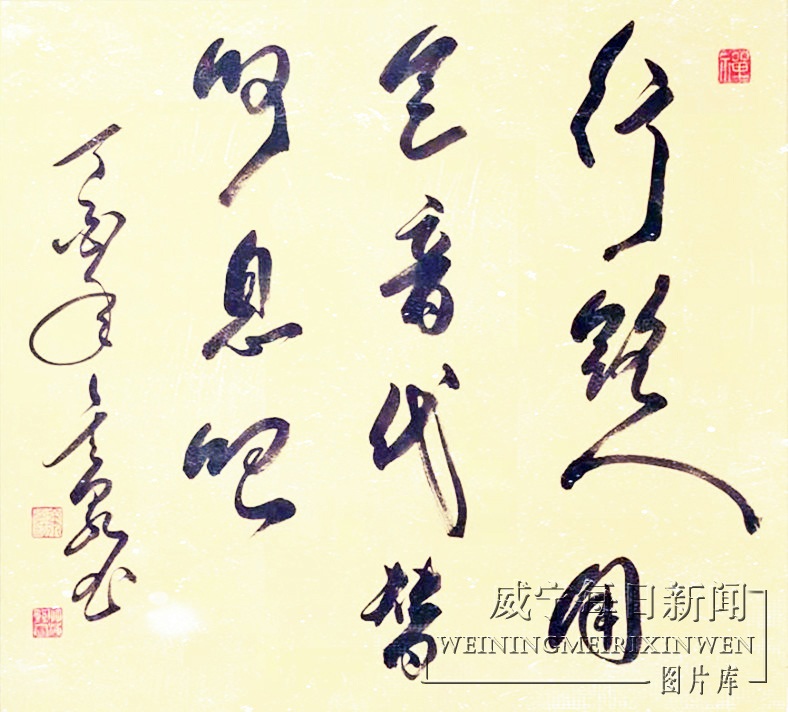 行路人用
足音代替
息吧
丁酉年
威宁每日新闻
WEININGMEIRIXINWEN
图片库